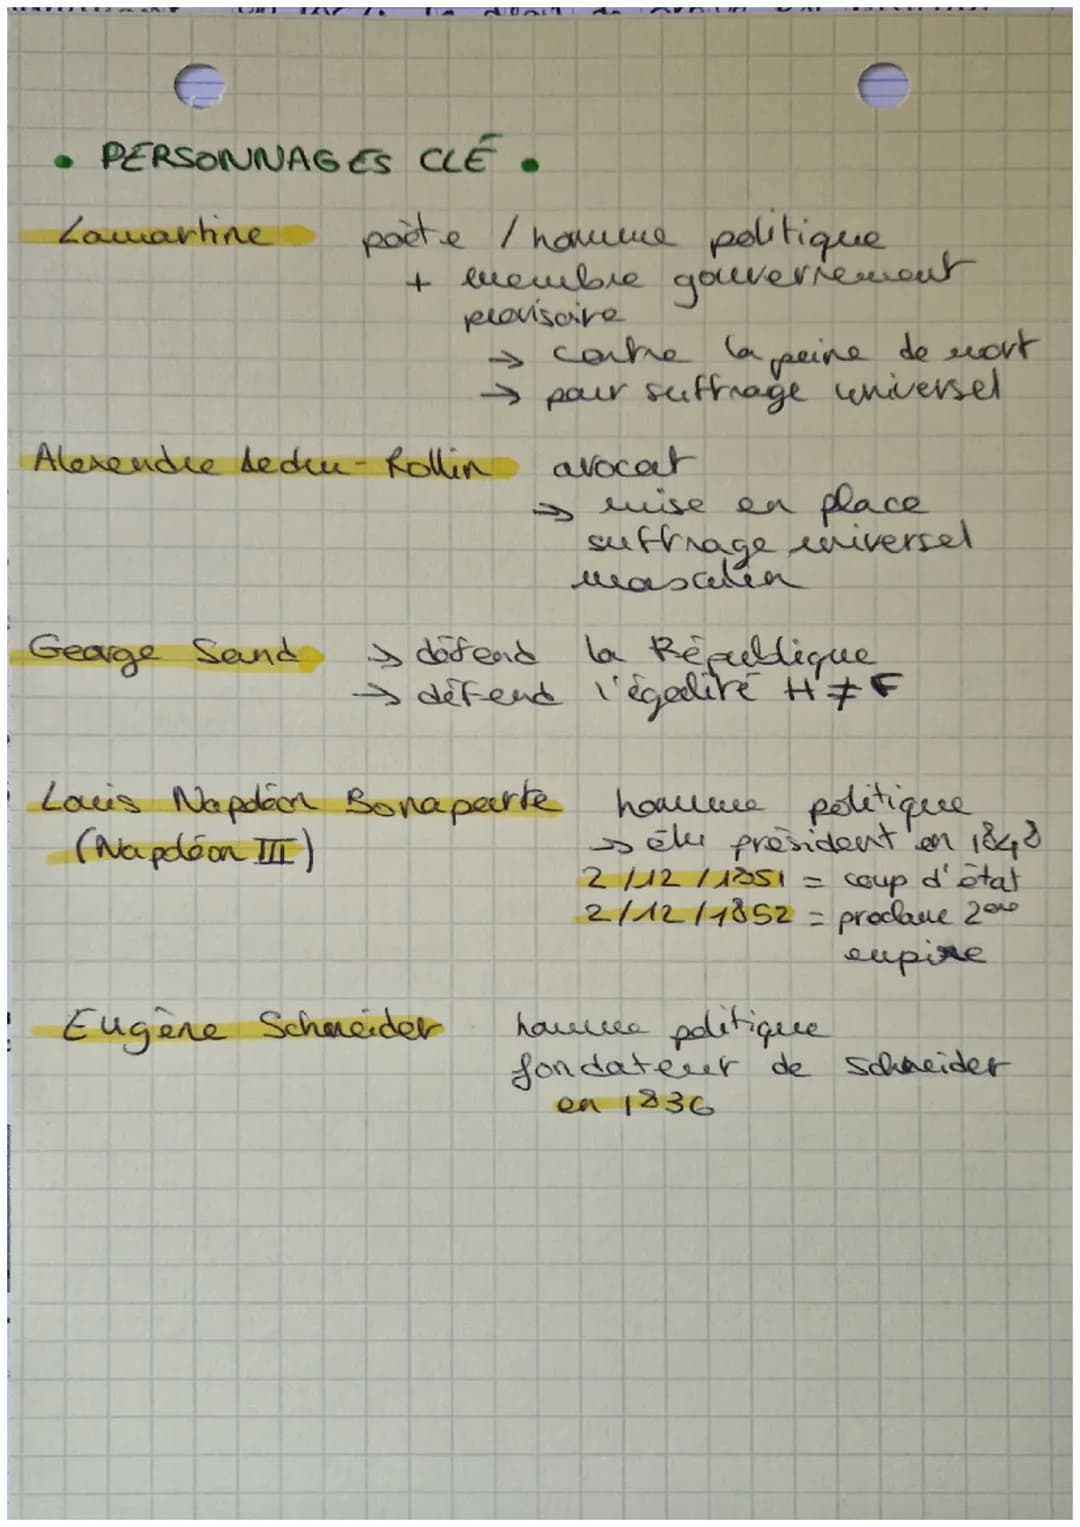 • PERSONNAGES CLÉ •
Lamartine poète / homme politique
+ membre gouvernement
provisoire
→ contre la peine de mort
→ pour suffrage universel
Alexendre Ledru-Rollin avocat
→ mise en place
suffrage universel
masculin
George Sand → défend la République
→ défend l'égalité H ≠ F
Louis Napoléon Bonaparte homme politique
(Napoléon III) → élu président en 1848
2/12/1851 = coup d'état
2/12/1852 = proclame 2ème
empire
Eugène Schneider homme politique
fondateur de Schneider
en 1836